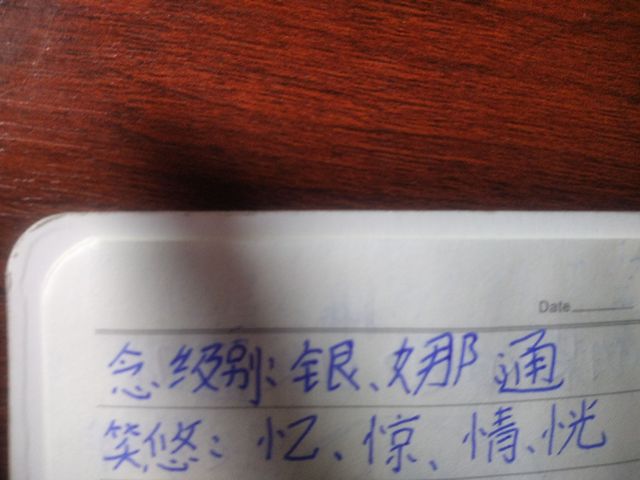 Date
念级别:银、娜通
笑悠:忆、惊、情、恍